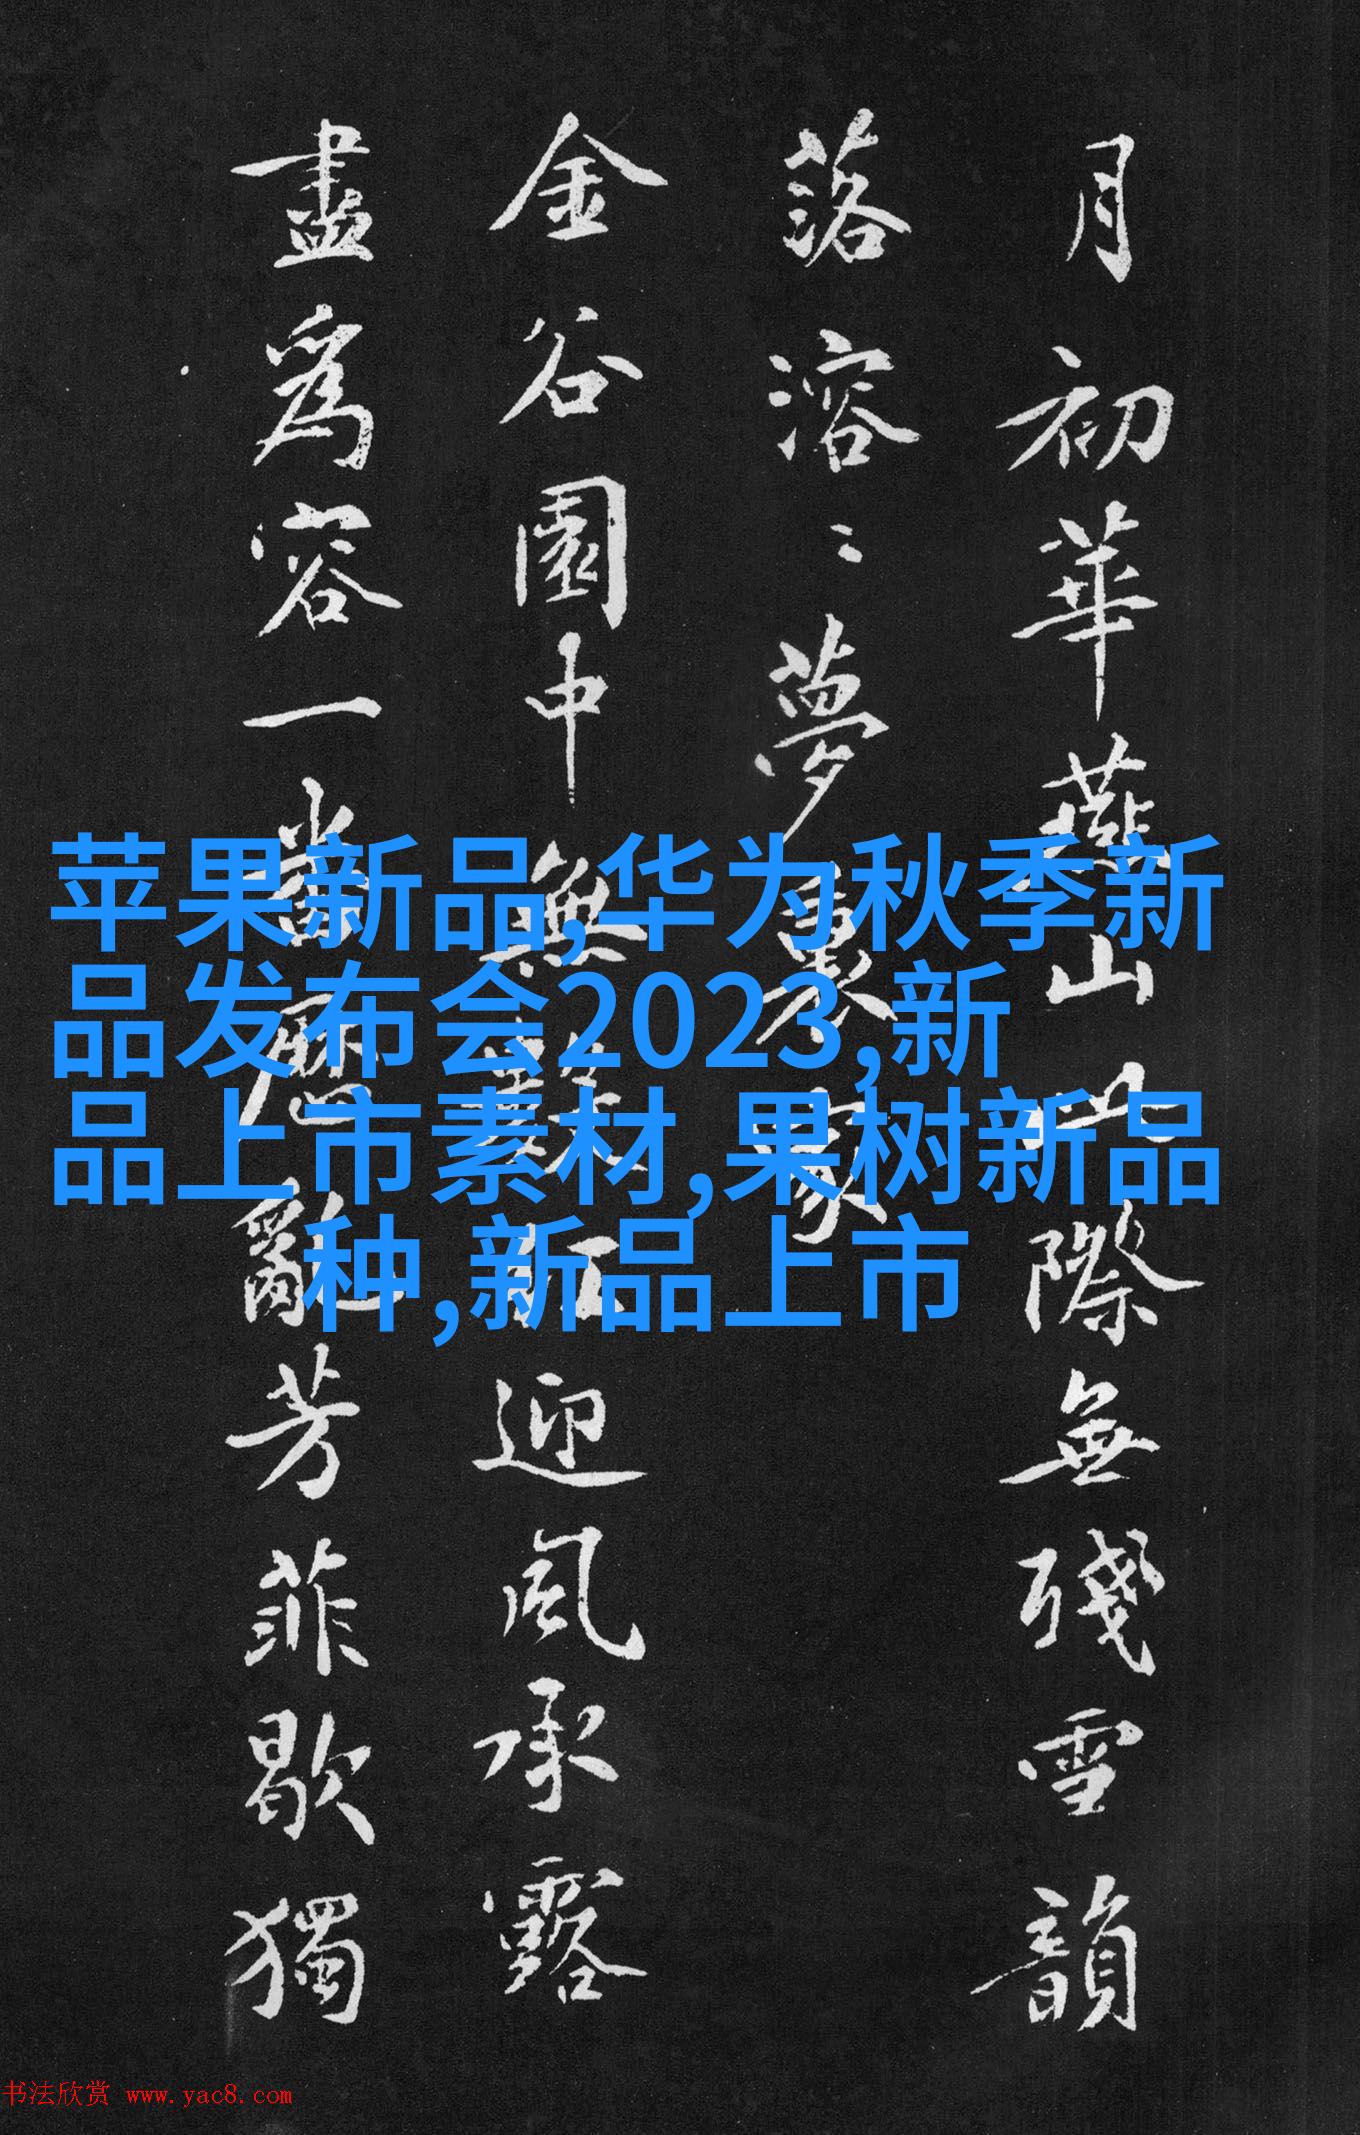 月初華燕山際無殘雪韻
落溶〻夢裏家
金谷園中無紅迎風承露
盡爲容一亂芳菲歇獨
苹果新品,华为秋季新
品发布会2023,新
品上市素材,果树新品
种,新品上市
书法欣赏 www.yac8.com